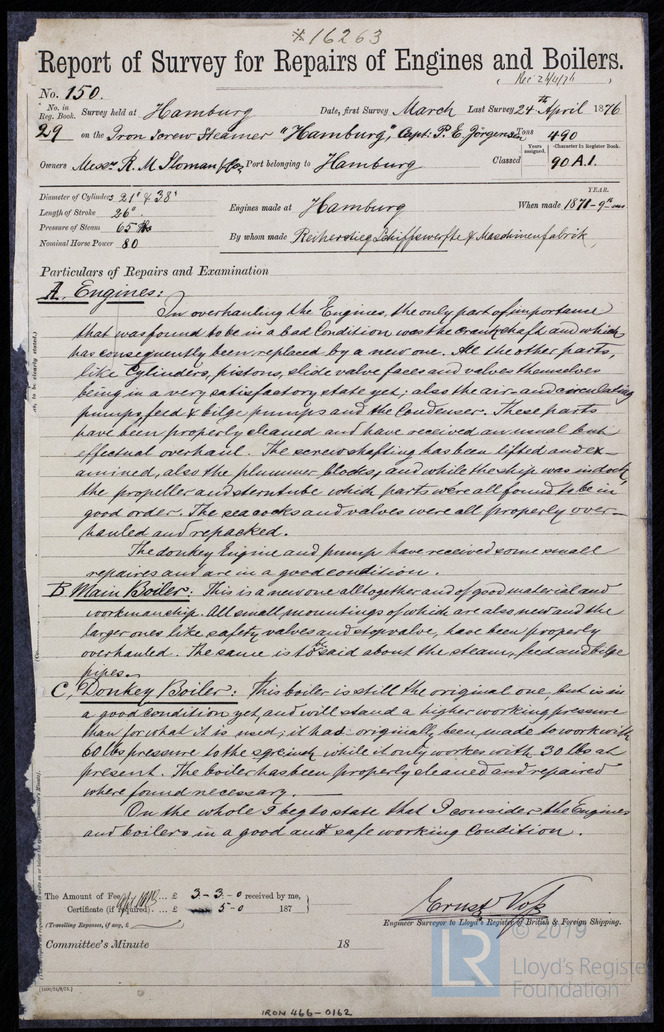 *16263
Report of Survey for Repairs of Engines and Boilers.
(Rec 26/4/76)
No. 150.
No. in Reg. Book. Survey held at Hamburg Date, first Survey March Last Survey 24th April 1876
29 on the Iron Screw Steamer "Hamburg," Capt: P. E. Jörgensen Tons 490
Years assigned. Character in Register Book.
Owners Messrs R. M. Sloman & Co, Port belonging to Hamburg Classed 90 A.1.
YEAR.
Diameter of Cylinders 21" & 38"
Length of Stroke 26" Engines made at Hamburg When made 1871-9th
Pressure of Steam 65 lbs
Nominal Horse Power 80 By whom made Reiherstieg Schiffswerfte & Maschinenfabrik
Particulars of Repairs and Examination
A. Engines:
In overhauling the Engines, the only part of importance
that was found to be in a bad Condition was the crankshaft and which
has consequently been replaced by a new one. All the other parts,
like Cylinders, pistons, slide valve faces and valves themselves
being in a very satisfactory state yet; also the air- and circulating
pumps, feed & bilge pumps and the Condenser. These parts
have been properly cleaned and have received an usual but
effectual overhaul. The screwshafting has been lifted and ex-
amined, also the plummer blocks, and while the ship was in dock,
the propeller and sterntube which parts were all found to be in
good order. The sea cocks and valves were all properly over-
hauled and repacked.
The donkey Engine and pump have received some small
repaires and are in a good condition.
B Main Boiler: This is a new one alltogether and of good material and
workmanship. All small mountings of which are also new and the
larger ones like safety valves and stopvalve, have been properly
overhauled. The same is to be said about the steam, feed and bilge
pipes.
C. Donkey Boiler: This boiler is still the original one but is in
a good condition yet, and will stand a higher working pressure
than for what it is used; it has originally been made to work with
60 lbs pressure to the sq. inch while it only workes with 30 lbs at
present. The boiler has been properly cleaned and repaired
where found necessary.
On the whole I beg to state that I consider the Engines
and boilers in a good and safe working Condition.
The Amount of Fee ... £ 3-3-0 received by me,
Certificate (if required) ... £ 5-0 187
(Travelling Expenses, if any, £ )
Ernst Voß
Engineer Surveyor to Lloyd's Register of British & Foreign Shipping.
Committee's Minute 18
LR © 2019
Lloyd's Register
Foundation
IRON 466-0162